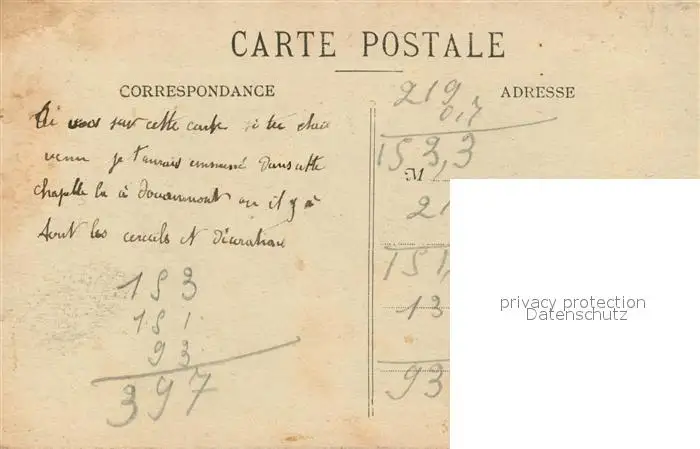 CARTE POSTALE
CORRESPONDANCE
ADRESSE
sur cette carte si tu étais
venu je t'aurais emmené dans cette
chapelle la à douaumont ou il y à
tout les cercuils et décorations
153
151
93
397
219
0,7
153,3
M
21
151,
13
93
privacy protection
Datenschutz